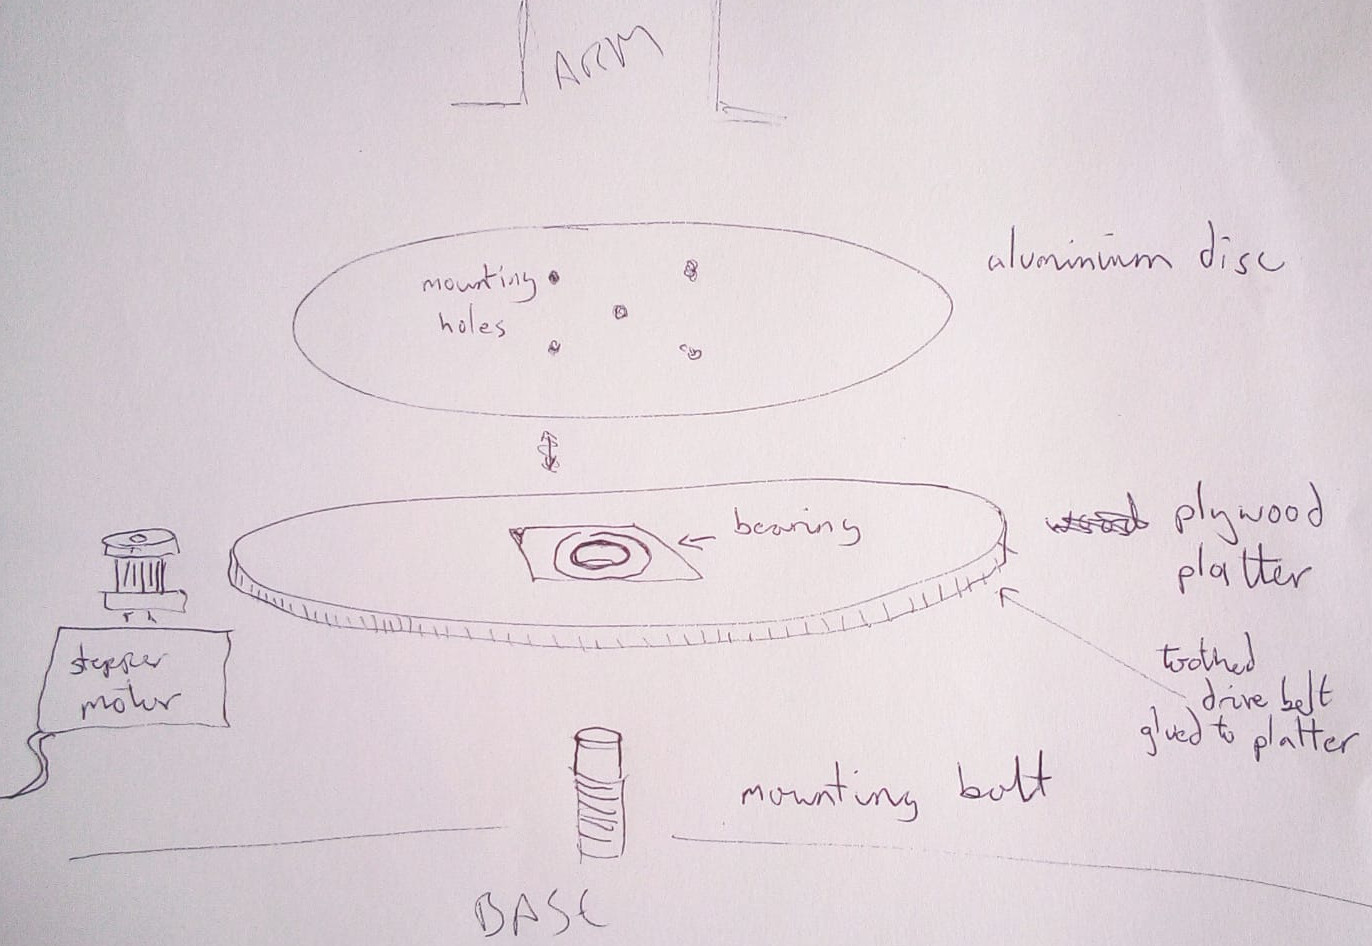 ARM
aluminium disc
mounting
holes
bearing
plywood
platter
stepper
motor
toothed
drive belt
glued to platter
mounting bolt
BASE